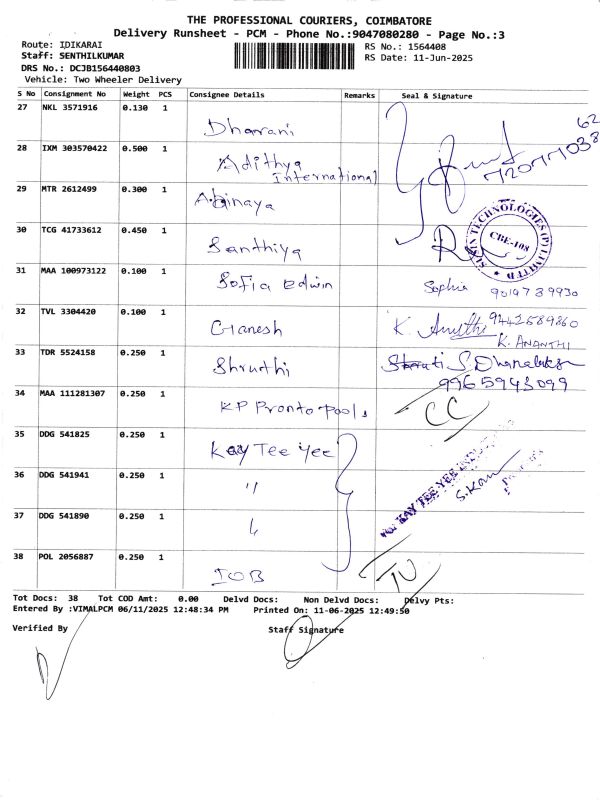 THE PROFESSIONAL COURIERS, COIMBATORE
Delivery Runsheet - PCM - Phone No.:9047080280 - Page No.:3
Route: IDIKARAI
RS No.: 1564408
Staff: SENTHILKUMAR
RS Date: 11-Jun-2025
DRS No.: DCJB156440803
Vehicle: Two Wheeler Delivery
S No Consignment No Weight PCS Consignee Details Remarks Seal & Signature
27 NKL 3571916 0.130 1
Dharani
28 IXM 303570422 0.500 1
Adithya
International
29 MTR 2612499 0.300 1
Abinaya
30 TCG 41733612 0.450 1
Santhiya
TECHNOLOGIES (P) LIMITED
CBE-108
31 MAA 100973122 0.100 1
Sofia Edwin Sophia
32 TVL 3304420 0.100 1
Ganesh K. 9442689860
K. ANANTHI
33 TDR 5524158 0.250 1
Shruthi S. Dhanalaksmi
9965943099
34 MAA 111281307 0.250 1
KP Pronto Pools CC
35 DDG 541825 0.250 1
Kay Tee Yee
KAY TEE YEE
36 DDG 541941 0.250 1
"
37 DDG 541890 0.250 1
"
38 POL 2056887 0.250 1
IOB
Tot Docs: 38 Tot COD Amt: 0.00 Delvd Docs: Non Delvd Docs: Delvy Pts:
Entered By :VIMALPCM 06/11/2025 12:48:34 PM Printed On: 11-06-2025 12:49:50
Verified By Staff Signature